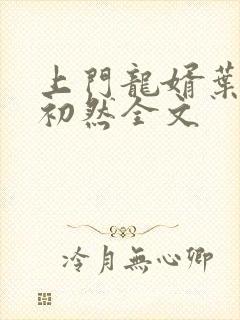 上門龍婿葉
初然全文
冷月無心卿